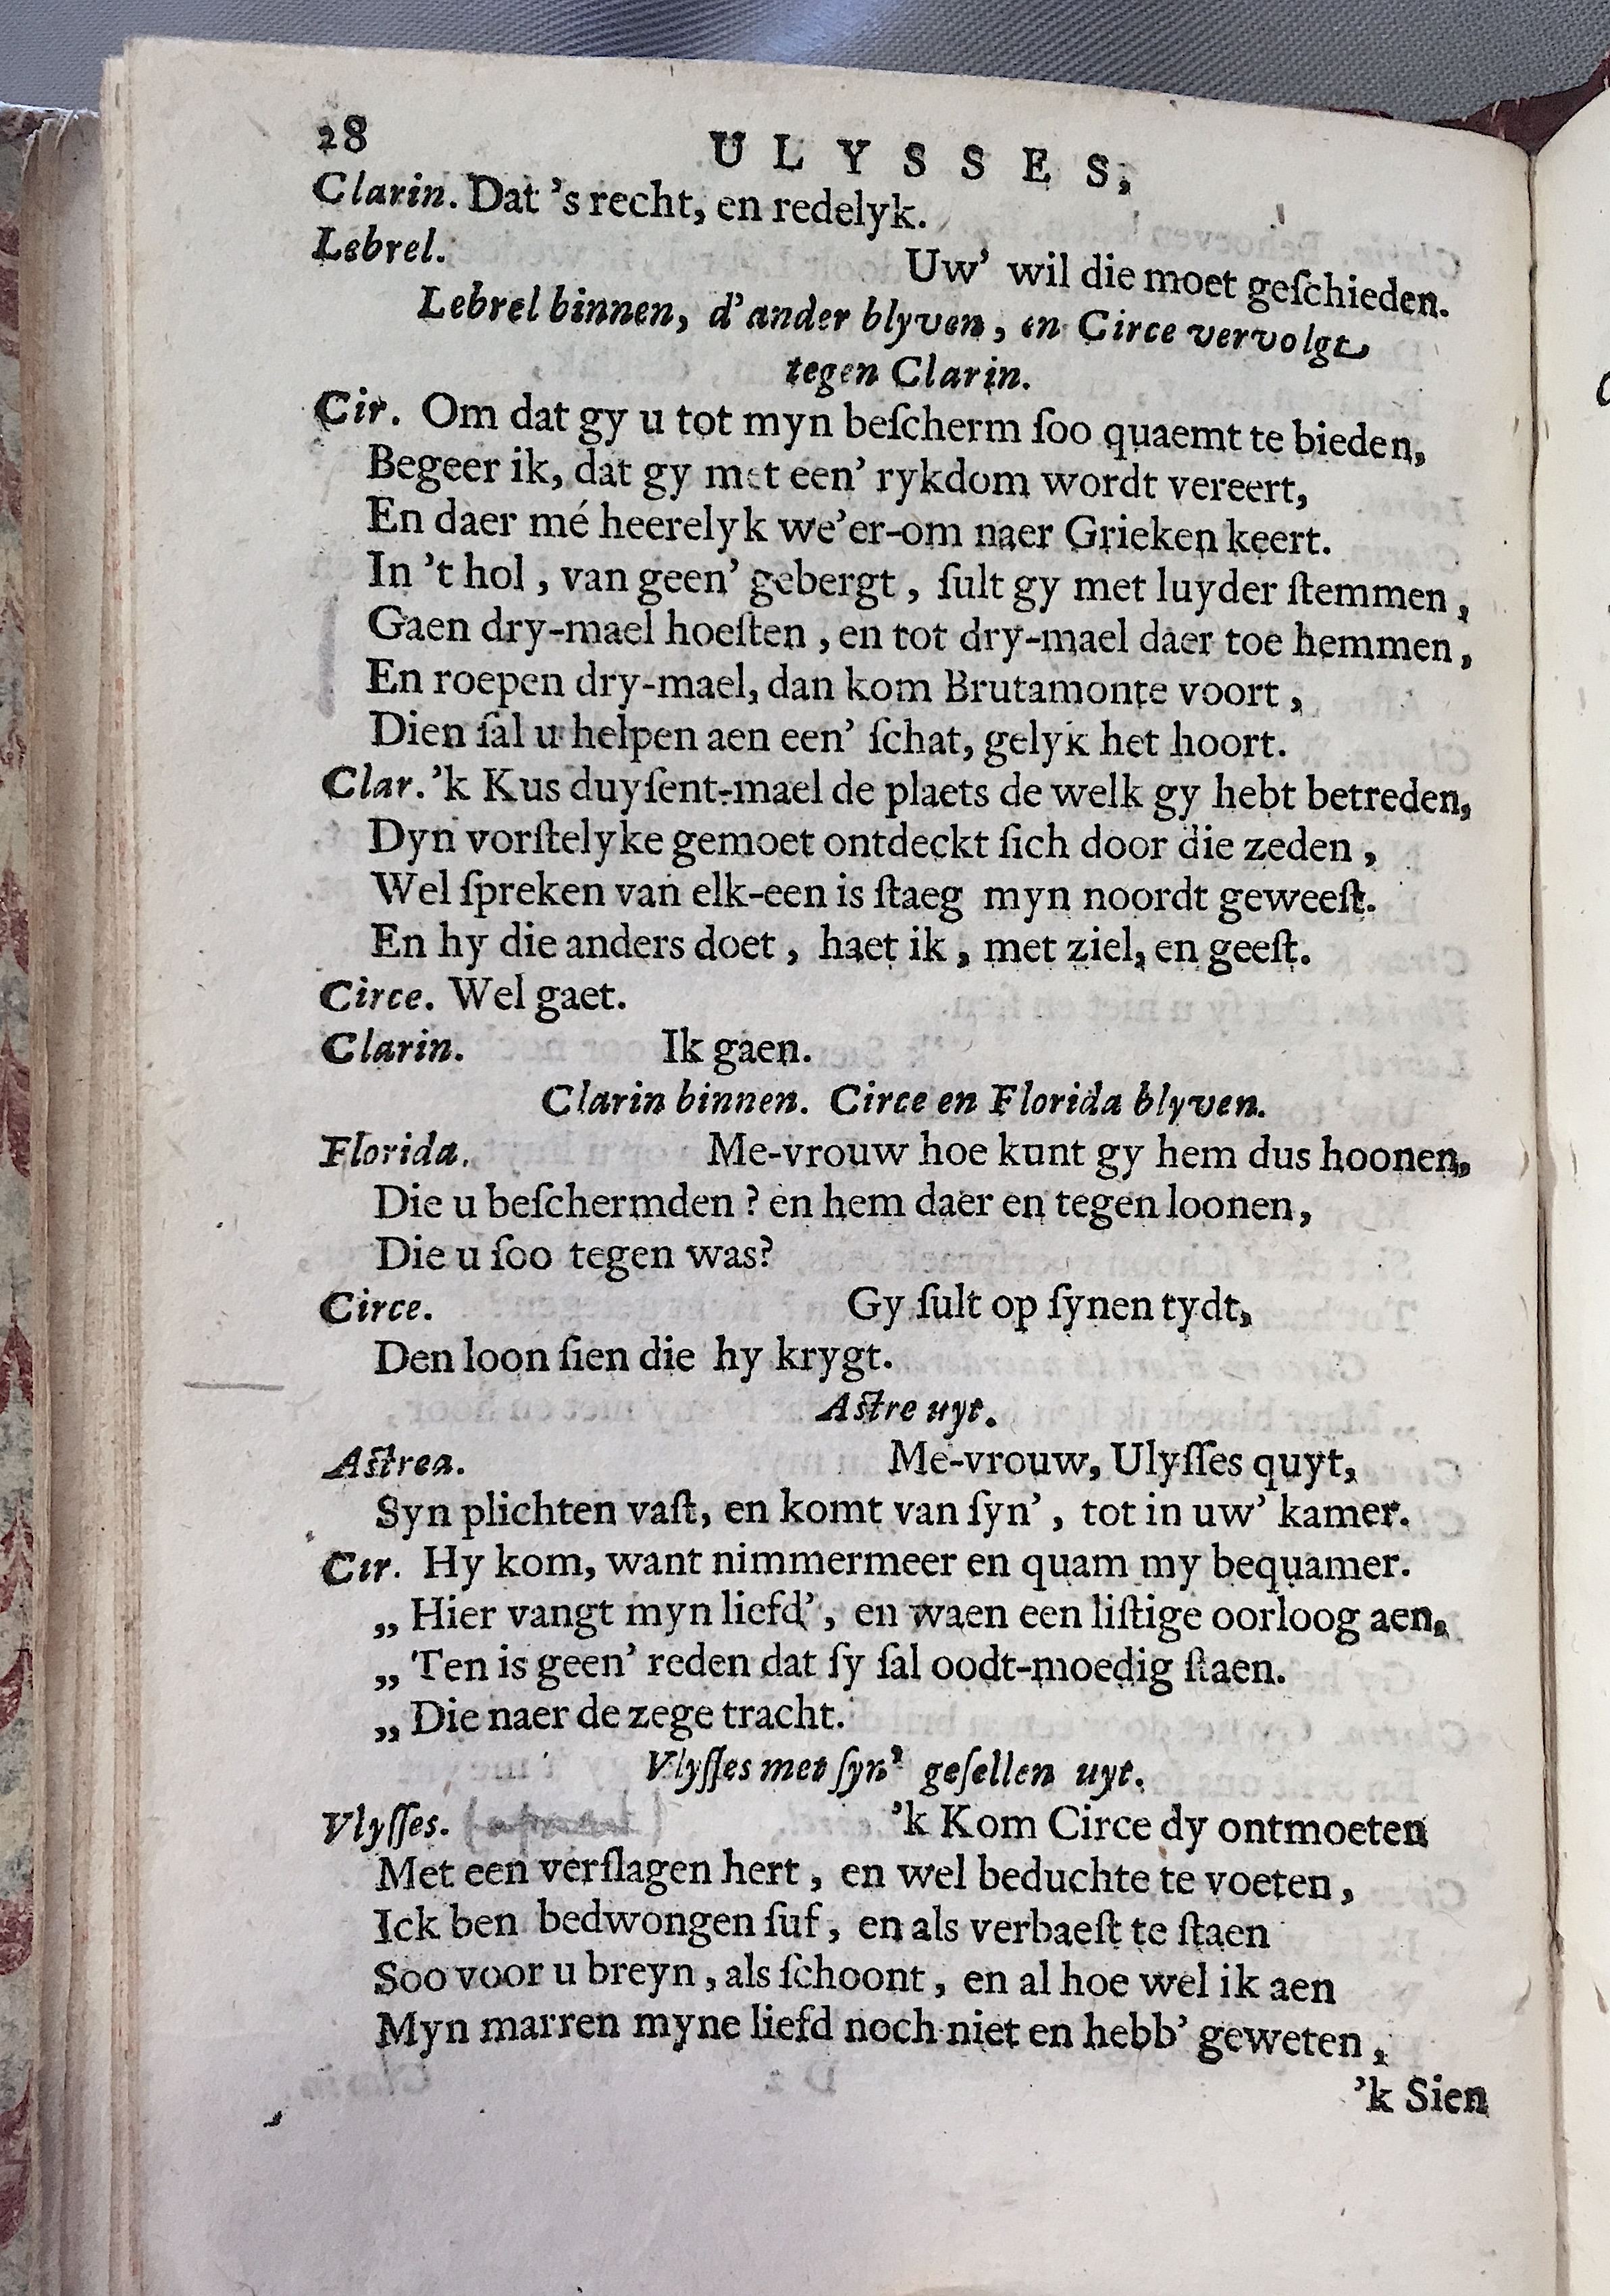 28 ULYSSES,
Clarin. Dat 's recht, en redelyk.
Lebrel. Uw' wil die moet geſchieden.
Lebrel binnen, d'ander blyven, en Circe vervolgt
tegen Clarin.
Cir. Om dat gy u tot myn beſcherm ſoo quaemt te bieden,
Begeer ik, dat gy met een' rykdom wordt vereert,
En daer mé heerelyk we'er-om naer Grieken keert.
In 't hol, van geen' gebergt, ſult gy met luyder ſtemmen,
Gaen dry-mael hoeſten, en tot dry-mael daer toe hemmen,
En roepen dry-mael, dan kom Brutamonte voort,
Dien ſal u helpen aen een' ſchat, gelyk het hoort.
Clar. 'k Kus duyſent-mael de plaets de welk gy hebt betreden,
Dyn vorſtelyke gemoet ontdeckt ſich door die zeden,
Wel ſpreken van elk-een is ſtaeg myn noordt geweeſt.
En hy die anders doet, haet ik, met ziel, en geeſt.
Circe. Wel gaet.
Clarin. Ik gaen.
Clarin binnen. Circe en Florida blyven.
Florida. Me-vrouw hoe kunt gy hem dus hoonen,
Die u beſchermden? en hem daer en tegen loonen,
Die u ſoo tegen was?
Circe. Gy ſult op ſynen tydt,
Den loon ſien die hy krygt.
Aſtre uyt.
Aſtrea. Me-vrouw, Ulyſſes quyt,
Syn plichten vaſt, en komt van ſyn', tot in uw' kamer.
Cir. Hy kom, want nimmermeer en quam my bequamer.
„ Hier vangt myn liefd', en waen een liſtige oorloog aen,
„ 'Ten is geen' reden dat ſy ſal oodt-moedig ſtaen.
„ Die naer de zege tracht.
Vlyſſes met ſyn' geſellen uyt.
Vlyſſes. 'k Kom Circe dy ontmoeten
Met een verſlagen hert, en wel beduchte te voeten,
Ick ben bedwongen ſuf, en als verbaeſt te ſtaen
Soo voor u breyn, als ſchoont, en al hoe wel ik aen
Myn marren myne liefd noch niet en hebb' geweten,
'k Sien